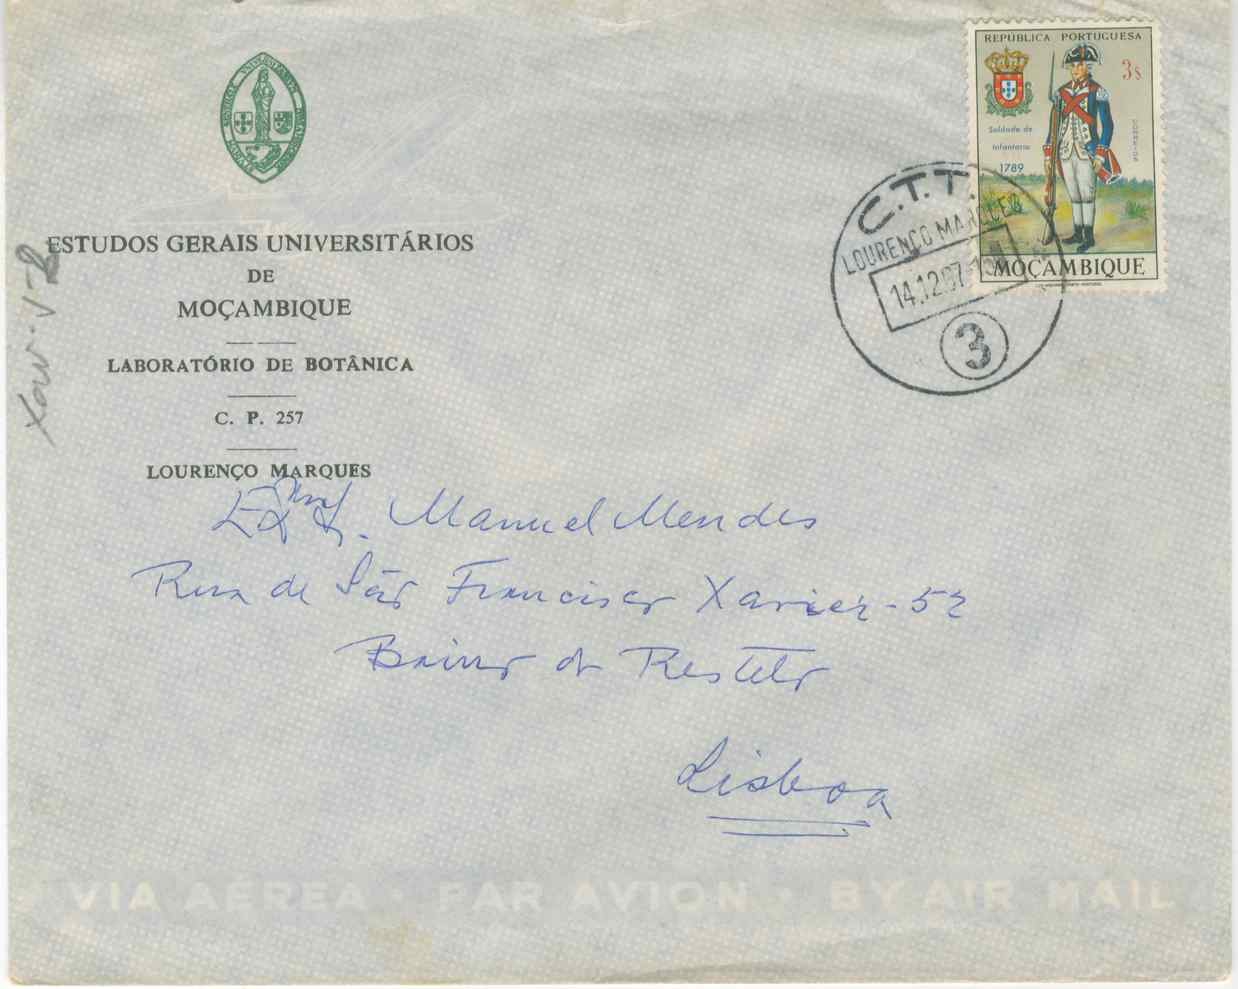 REPÚBLICA PORTUGUESA
3$
Soldado de
Infantaria
1789
MOÇAMBIQUE
C.T.T.
LOURENÇO MARQUES
14.12.67
3
ESTUDOS GERAIS UNIVERSITÁRIOS
DE
MOÇAMBIQUE
LABORATÓRIO DE BOTÂNICA
C. P. 257
LOURENÇO MARQUES
Manuel Mendes
Rua de São Francisco Xavier - 52
Bairro do Restelo
Lisboa
VIA AÉREA · PAR AVION · BY AIR MAIL